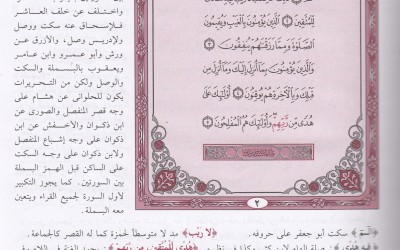 لِّلْمُتَّقِينَ ۝ ٱلَّذِينَ يُؤْمِنُونَ بِٱلْغَيْبِ وَيُقِيمُونَ
ٱلصَّلَوٰةَ وَمِمَّا رَزَقْنَٰهُمْ يُنفِقُونَ ۝
وَٱلَّذِينَ يُؤْمِنُونَ بِمَآ أُنزِلَ إِلَيْكَ وَمَآ أُنزِلَ مِن
قَبْلِكَ وَبِٱلْءَاخِرَةِ هُمْ يُوقِنُونَ ۝ أُوْلَٰٓئِكَ عَلَىٰ
هُدًى مِّن رَّبِّهِمْ وَأُوْلَٰٓئِكَ هُمُ ٱلْمُفْلِحُونَ ۝
٢
واختلف عن خلف العاشر
فلإسحاق عنه سكت ووصل
ولإدريس وصل، والأزرق عن
ورش وأبو عمرو وابن عامر
ويعقوب بالبسملة والسكت
والوصل ولكن من التحريرات
يكون للحلواني عن هشام على
وجه قصر المنفصل والصوري عن
ابن ذكوان والأخفش عن ابن
ذكوان على وجه إشباع المتصل
ولابن ذكوان على وجه السكت
على الساكن قبل الهمز البسملة
بين السورتين. كما يجوز التكبير
لأول السورة لجميع القراء ويتعين
معه البسملة.
﴿الٓمٓ﴾ سكت أبو جعفر على حروفه. ﴿لَا رَيْبَ﴾ مد لا متوسطاً لحمزة كما له القصر كالجماعة.